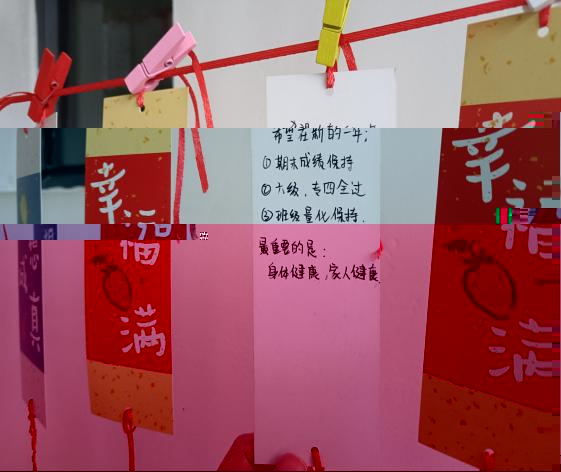 希望在新的一年：
①期末成绩保持
②六级，专四全过
③班级量化保持.
最重要的是：
身体健康，家人健康
幸福
满
幸福
满